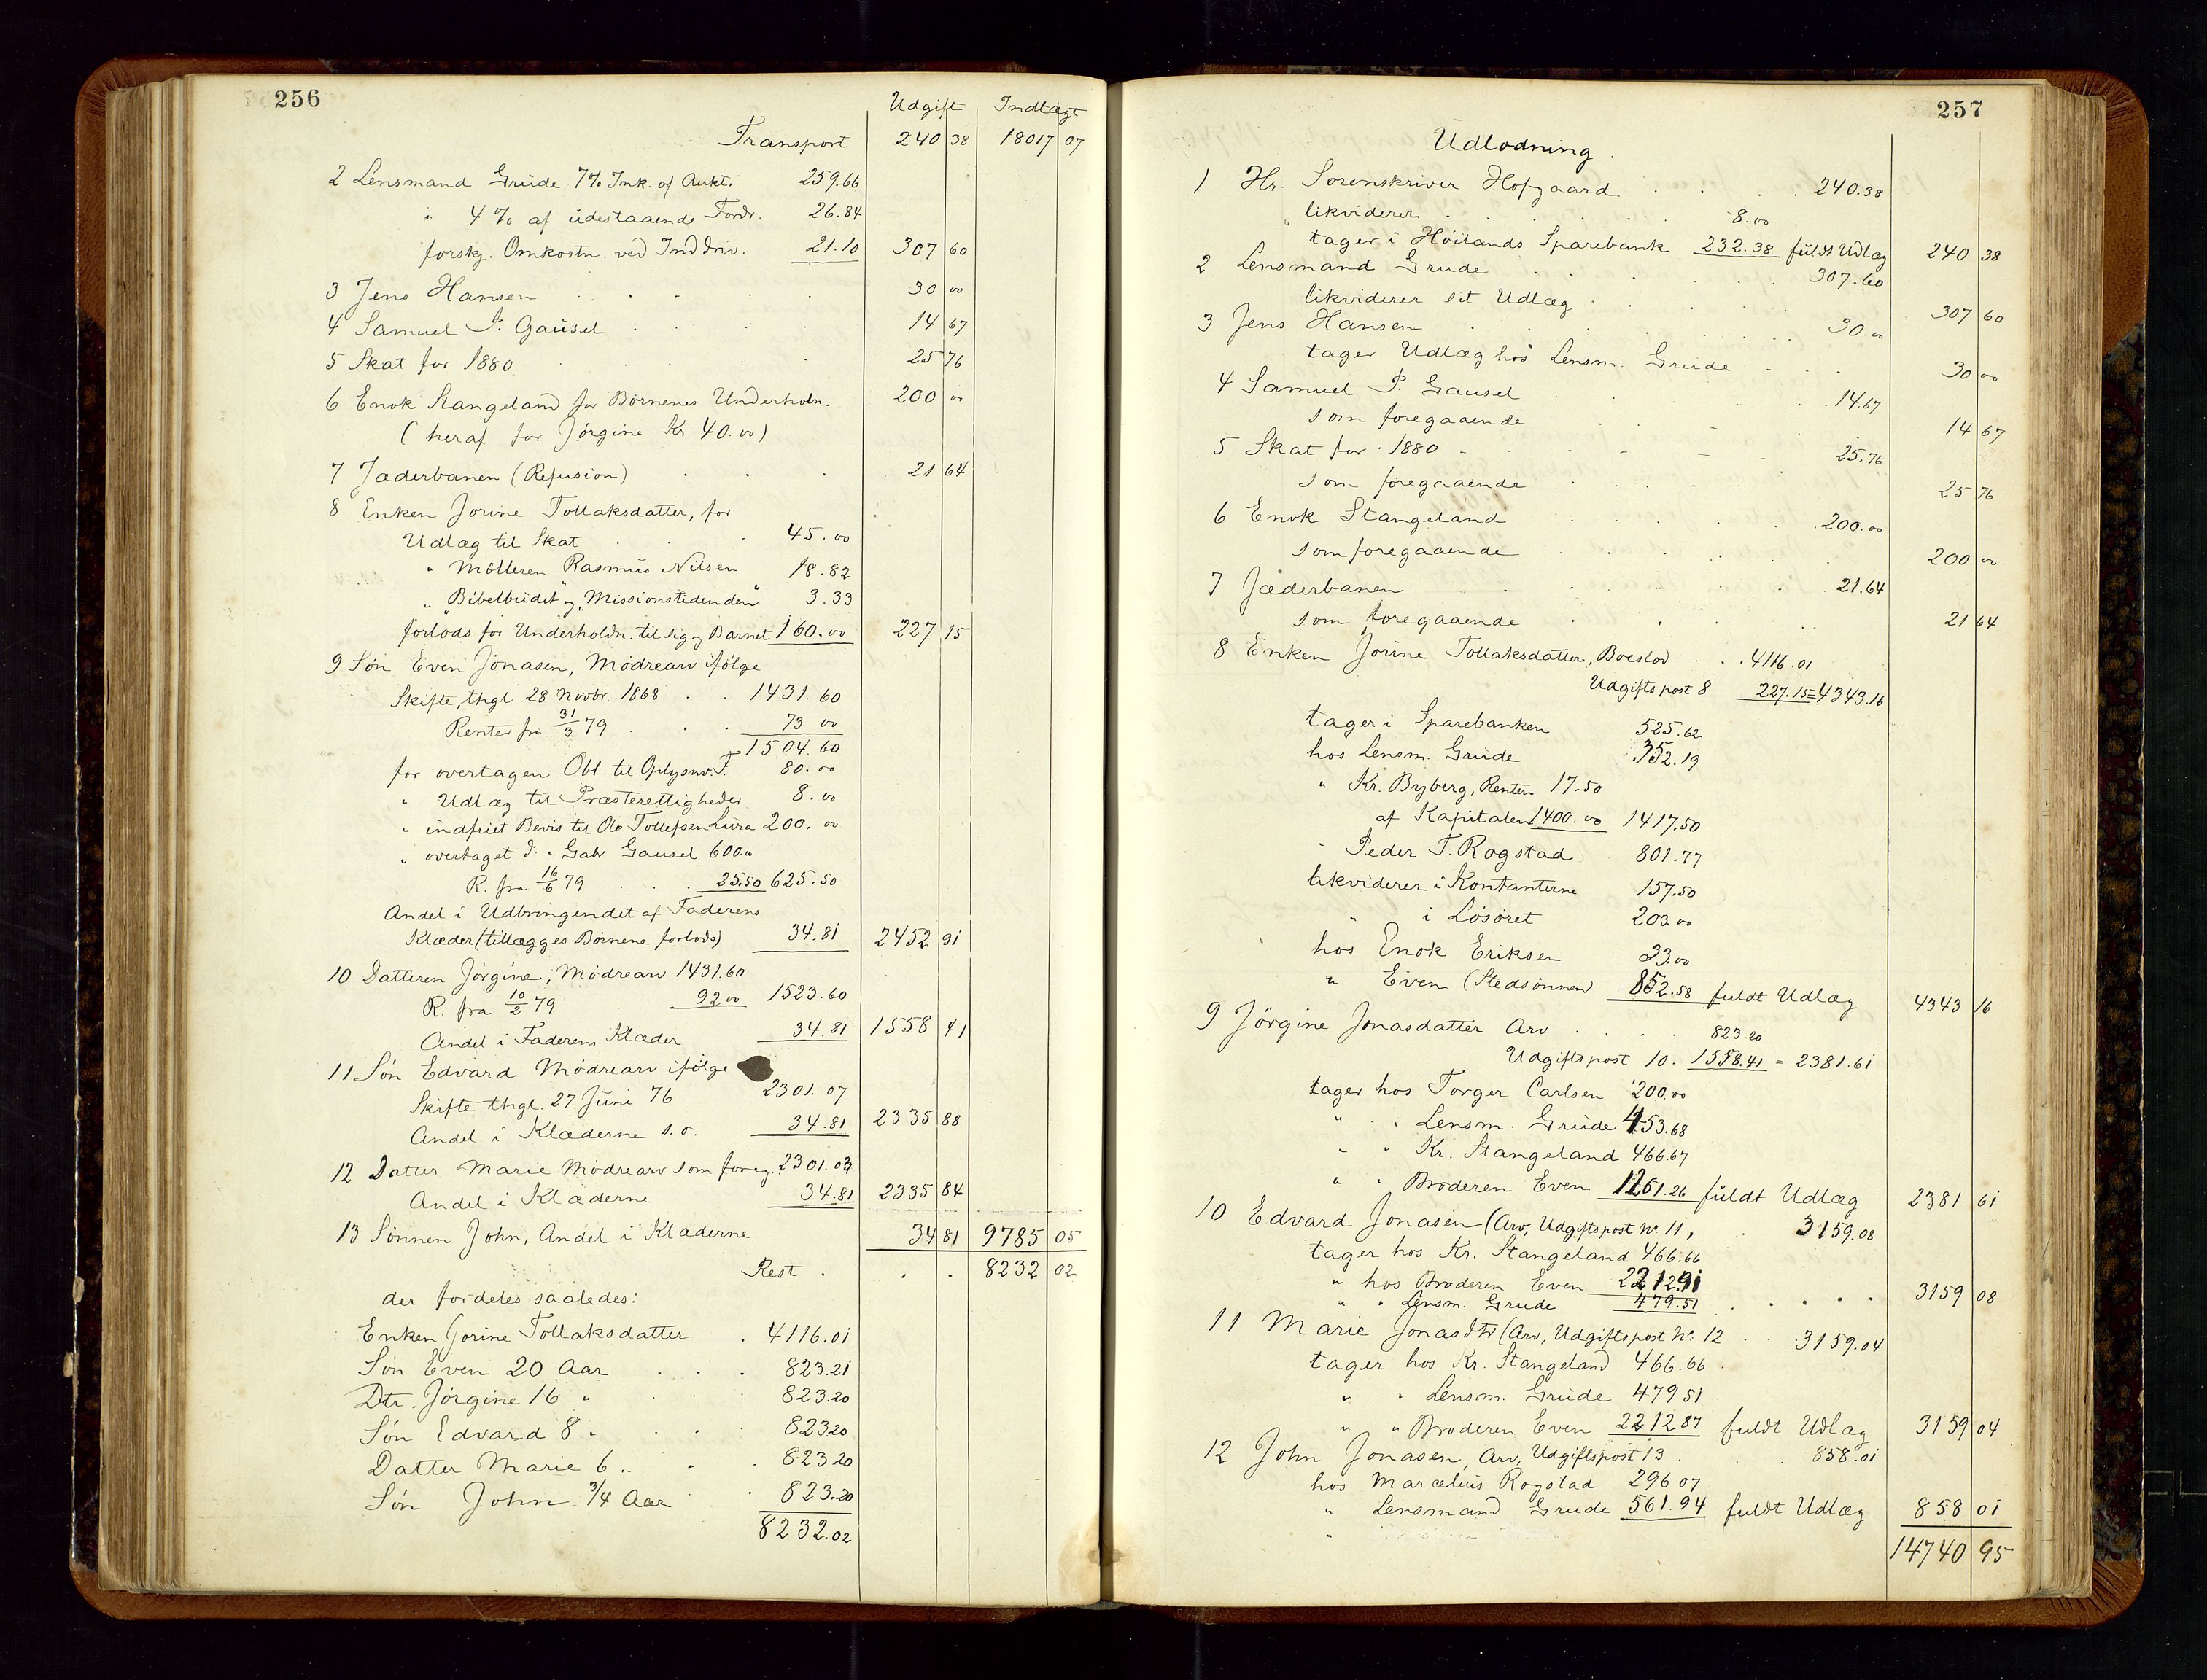 256
Udgift Indtægt
Transport 240 38 18017 07
2 Lensmand Grude 7% Ink. af Aukt. 259.66
" 4% af udestaaende Fordr. 26.84
forskj. Omkostn. ved Inddriv. 21.10 307 60
3 Jens Hansen 30 00
4 Samuel P. Gausel 14 67
5 Skat for 1880 25 76
6 Enok Stangeland for Børnenes Underholdn. 200 00
(heraf for Jørgine Kr 40.00)
7 Jæderbanen (Refusion) 21 64
8 Enken Jorine Tollaksdatter, for
Udlæg til Skat 45.00
" Mølleren Rasmus Nilsen 18.82
" "Bibelbudet" og "Missionstidenden" 3.33
forlods for Underholdn. til sig og Barnet 160.00 227 15
9 Søn Even Jonasen, Mødrearv ifølge
Skifte, thgl 28 Novbr. 1868 1431.60
Renter fra 31/3 79 73 00
1504.60
for overtagen Obl. til Oplysnv. F. 80.00
" Udlæg til Præsterettigheder 8.00
" indfriet Bevis til Ole Tollefsen Lura 200.00
" overtaget d. " Gabr Gausel 600.00
R. fra 16/6 79 25.50 625.50
Andel i Udbringendet af Faderens
Klæder (tillægges Børnene forlods) 34.81 2452 91
10 Datteren Jørgine, Mødrearv 1431.60
R. fra 10/2 79 92 00 1523.60
Andel i Faderens Klæder 34.81 1558 41
11 Søn Edvard Mødrearv ifølge
Skifte thgl. 27 Juni 76 2301.07
Andel i Klæderne s.o. 34.81 2335 88
12 Datter Marie Mødrearv som foreg. 2301.03
Andel i Klæderne 34.81 2335 84
13 Sønnen John, Andel i Klæderne 34 81 9785 05
Rest 8232 02
der fordeles saaledes:
Enken Jorine Tollaksdatter 4116.01
Søn Even 20 Aar 823.21
Dtr. Jørgine 16 " 823.20
Søn Edvard 8 " 823.20
Datter Marie 6 " 823.20
Søn John 3/4 Aar 823.20
8232.02
257
Udlodning
1 Hr. Sorenskriver Hofgaard 240.38
likviderer 8.00
tager i Høilands Sparebank 232.38 fuldt Udlæg 240 38
2 Lensmand Grude 307.60
likviderer sit Udlæg 307 60
3 Jens Hansen 30.00
tager Udlæg hos Lensm. Grude 30 00
4 Samuel P. Gausel 14.67
som foregaaende 14 67
5 Skat for 1880 25.76
som foregaaende 25 76
6 Enok Stangeland 200.00
som foregaaende 200 00
7 Jæderbanen 21.64
som foregaaende 21 64
8 Enken Jorine Tollaksdatter, Boeslod 4116.01
Udgiftspost 8 227.15 = 4343.16
tager i Sparebanken 525.62
hos Lensm. Grude 352.19
" Kr. Byberg, Renten 17.50
af Kapitalen 1400.00 1417.50
" Peder T. Rogstad 801.77
likviderer i Kontanterne 157.50
" i Løsøret 203.00
hos Enok Eriksen 33.00
" Even (Stedsønnen) 852.58 fuldt Udlæg 4343 16
9 Jörgine Jonasdatter Arv 823.20
Udgiftspost 10. 1558.41 = 2381.61
tager hos Torger Carlsen 200.00
" " Lensm. Grude 453.68
" " Kr. Stangeland 466.67
" " Broderen Even 1261.26 fuldt Udlæg 2381 61
10 Edvard Jonasen (Arv, Udgiftspost No. 11, 3159.08
tager hos Kr. Stangeland 466.66
" hos Broderen Even 2212.91
" " Lensm. Grude 479.51 3159 08
11 Marie Jonasdtr (Arv, Udgiftspost No. 12 3159.04
tager hos Kr. Stangeland 466.66
" " Lensm. Grude 479 51
" " Broderen Even 2212 87 fuldt Udlæg 3159 04
12 John Jonasen, Arv, Udgiftspost 13 858.01
hos Marcelius Rogstad 296 07
" Lensmand Grude 561.94 fuldt Udlæg 858 01
14740 95